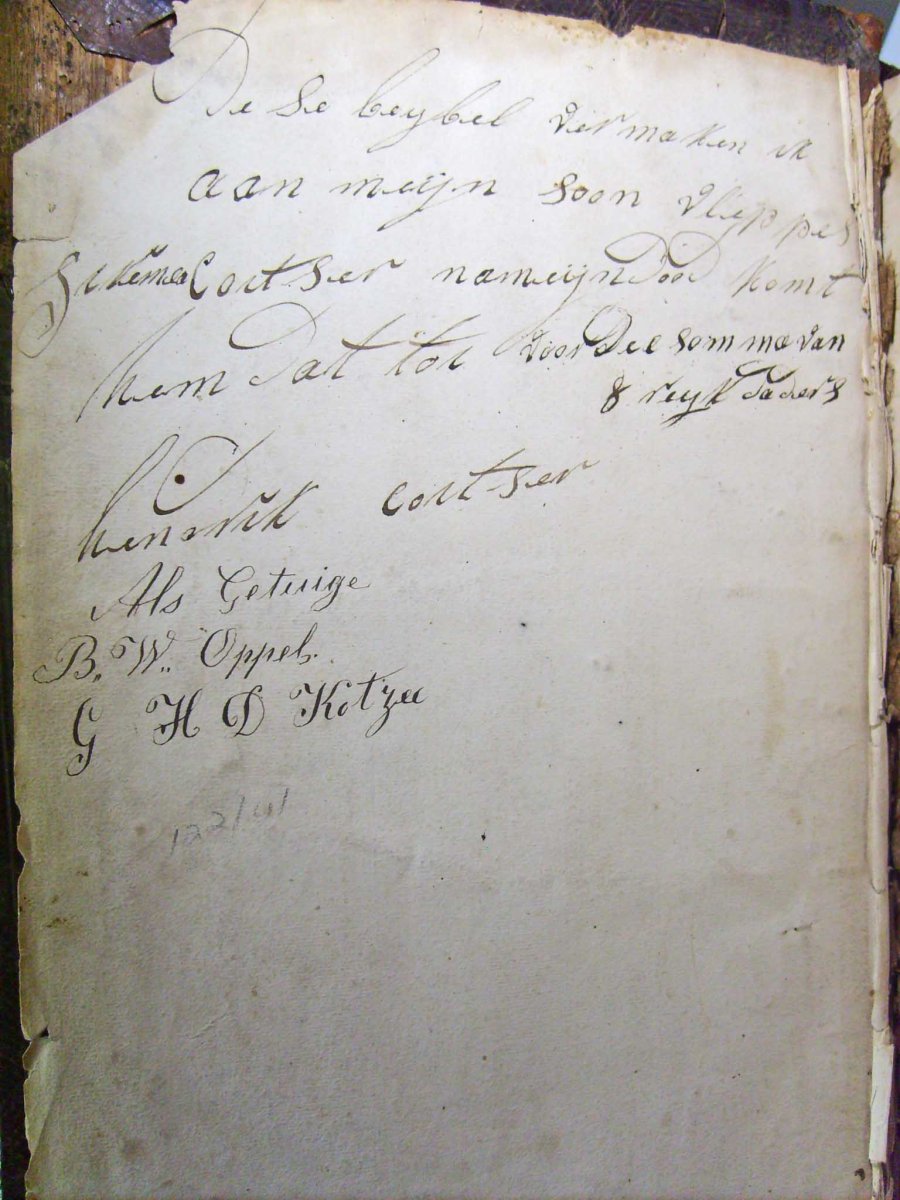 De se beybel vermaken ik
aan meijn soon vlippes
Coetser nameijn dood komt
hem dat toe voor Dee somma van
8 reyk daders
hendrik coetser
Als Getuige
B. W. Oppel.
G H D Kotzee